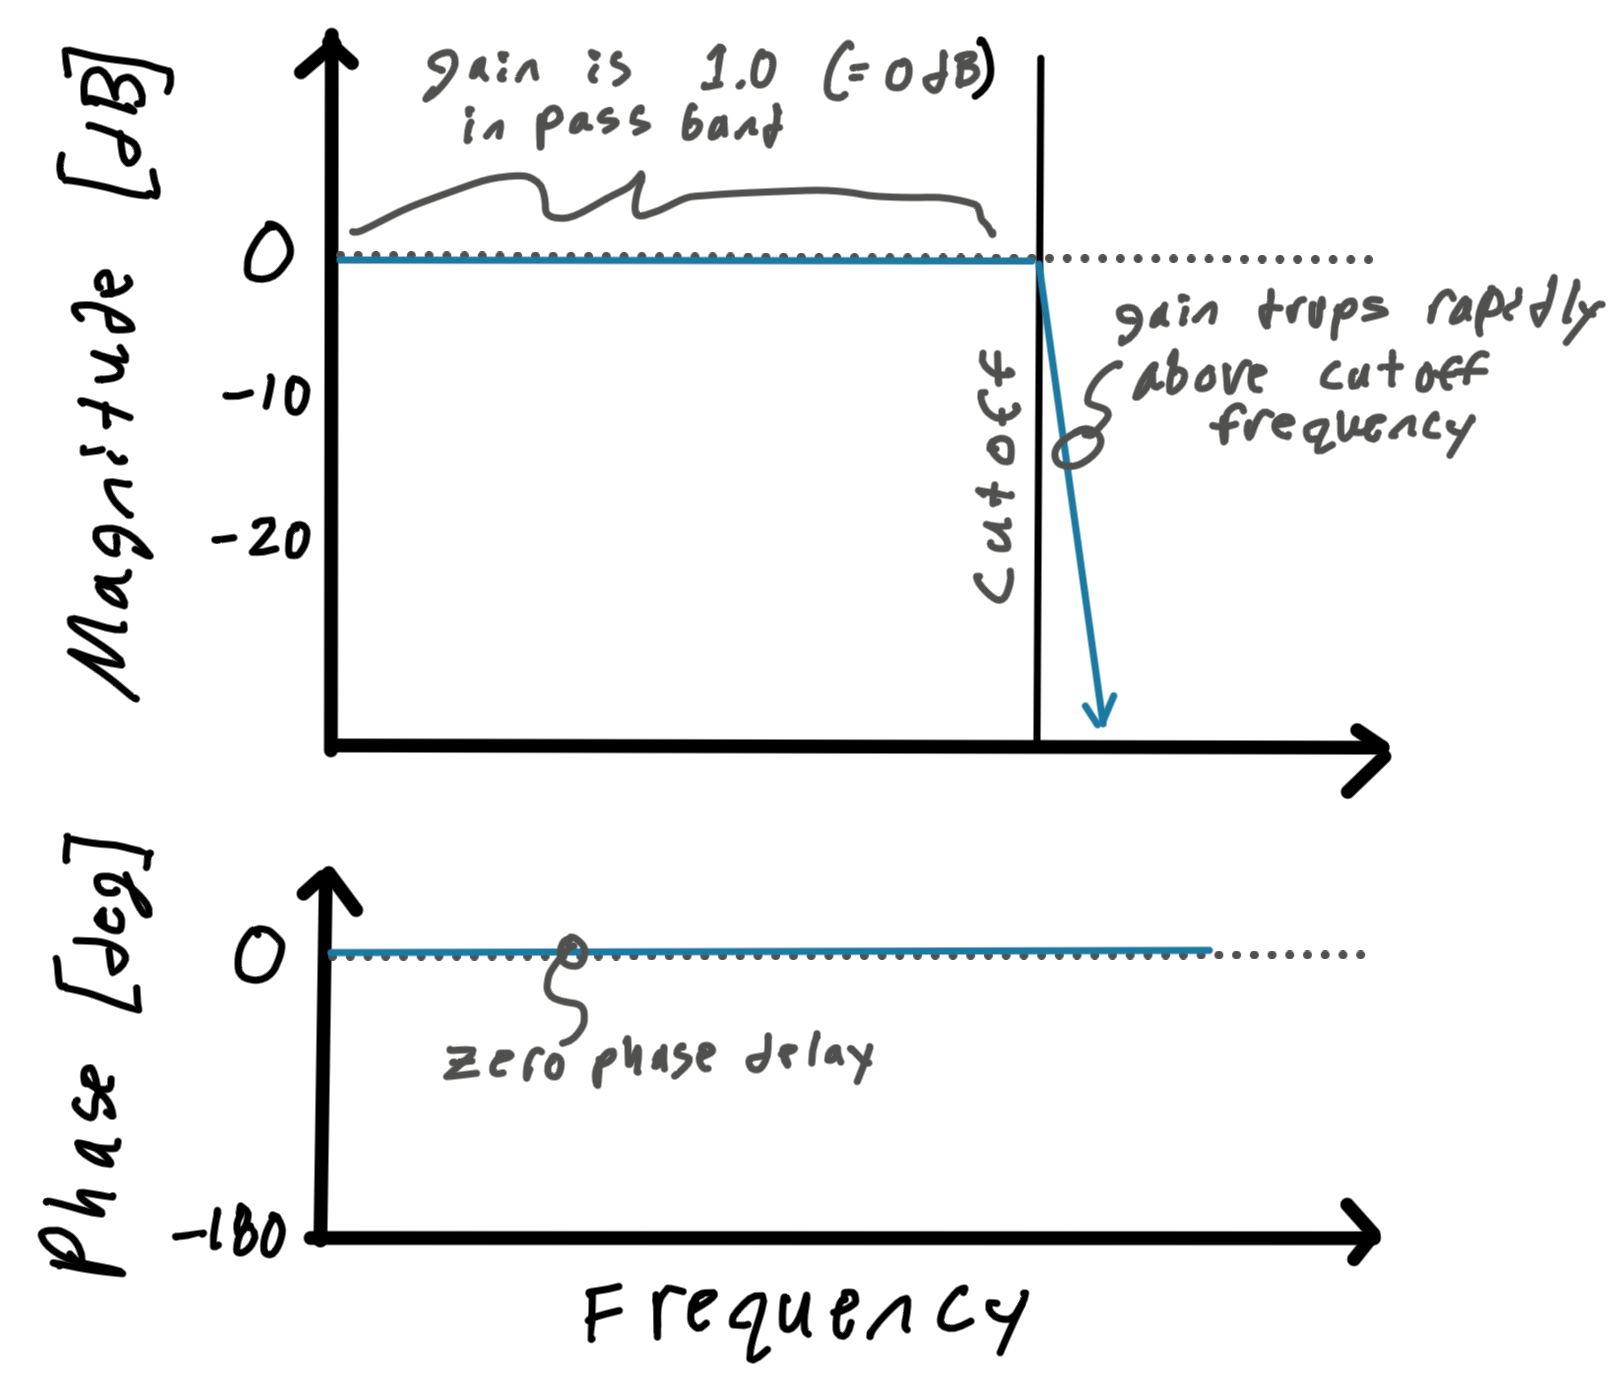 Magnitude [dB]
gain is 1.0 (= 0 dB)
in pass band
0
-10
-20
Cutoff
gain drops rapidly
above cutoff
frequency
Phase [deg]
0
zero phase delay
-180
Frequency